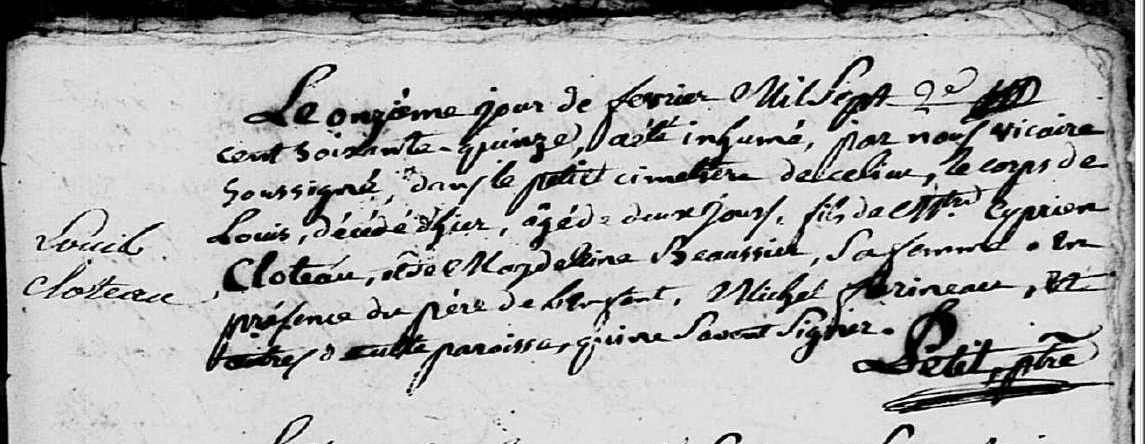 Le onzième jour de fevrier Mil Sept
cent soixante-quinze, a été inhumé, par nous vicaire
Soussigné dans le petit cimetière de ce lieu, le corps de
Louis, décédé d'hier, âgé de deux jours, fils de Cyprien
Louis
Cloteau, et de Magdeleine Beaussier, Sa femme. En
Cloteau
présence du père de l'enfant, Michel Perineau, et
autres de cette paroisse, qui ne Savent Signer.
Petit, ptre